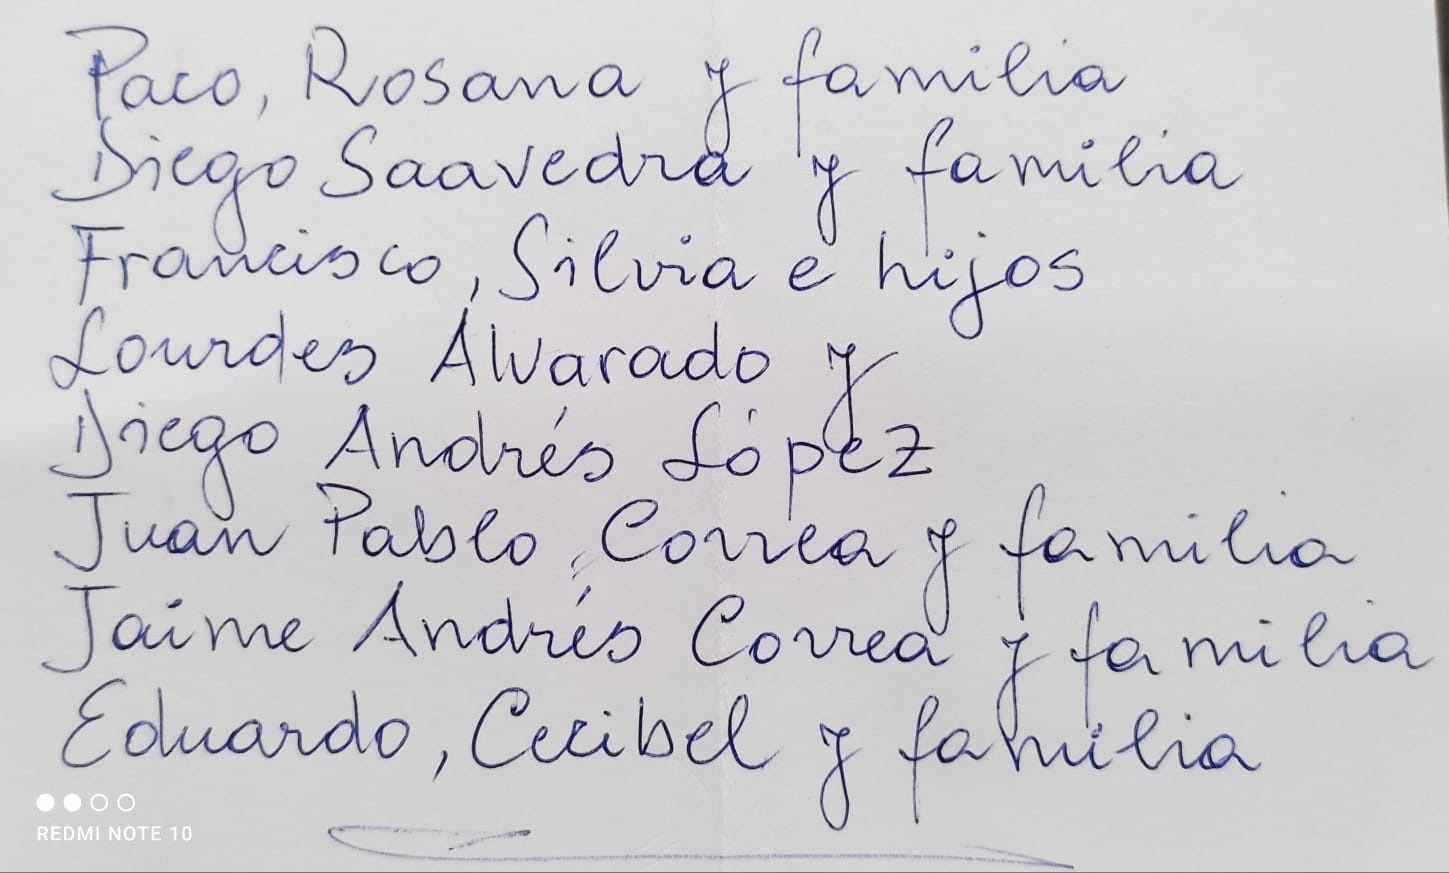 Paco, Rosana y familia
Diego Saavedra y familia
Francisco, Silvia e hijos
Lourdes Alvarado y
Diego Andrés López
Juan Pablo, Correa y familia
Jaime Andrés Correa y familia
Eduardo, Cecibel y familia
REDMI NOTE 10